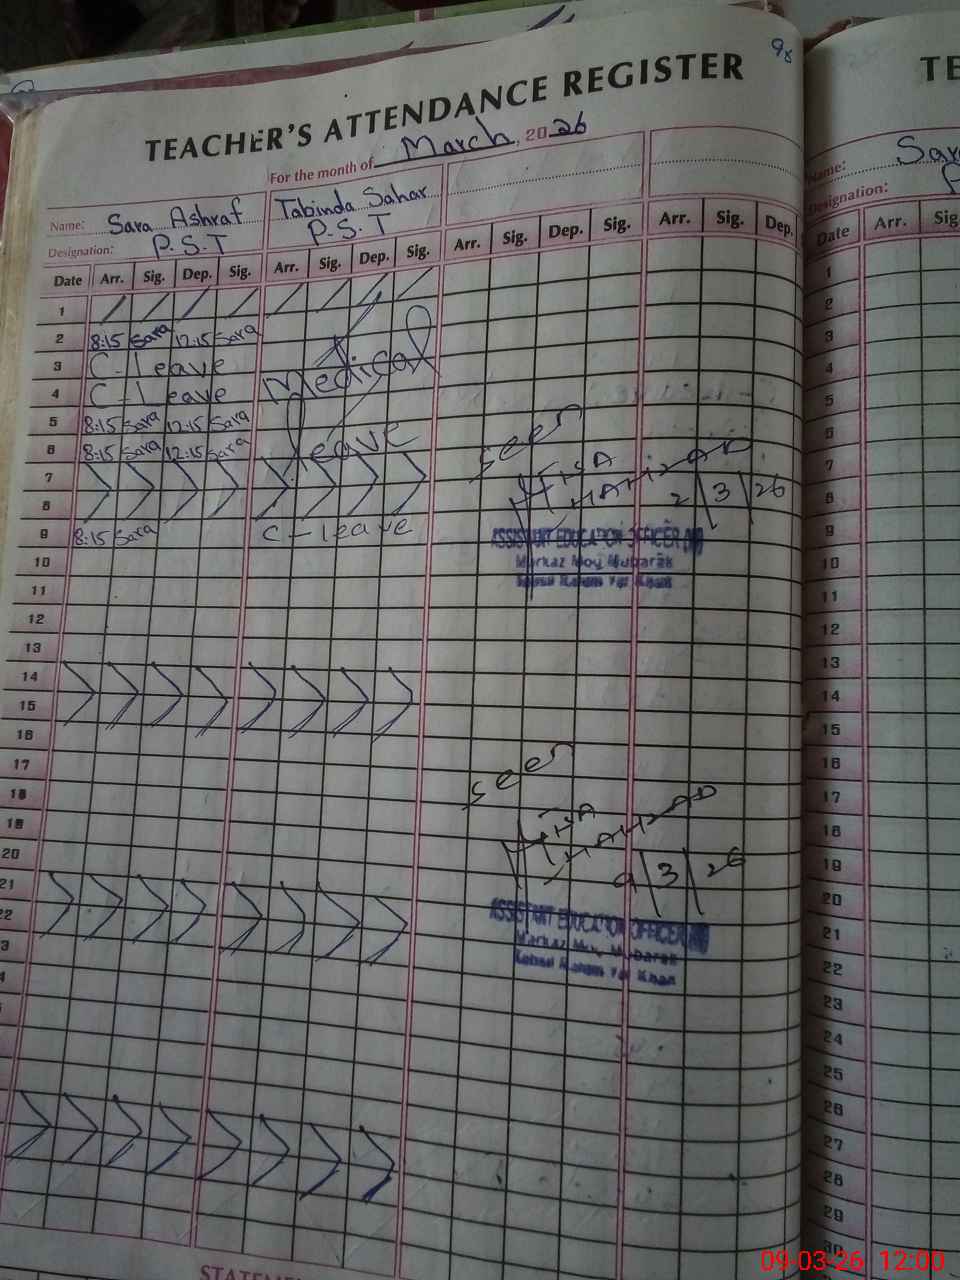 98
TEACHER'S ATTENDANCE REGISTER
For the month of March, 2026
Name: Sara Ashraf Tabinda Sahar
Designation: P.S.T P.S.T
Date Arr. Sig. Dep. Sig. Arr. Sig. Dep. Sig. Arr. Sig. Dep. Sig. Arr. Sig. Dep.
1
2 8:15 Sara 12:15 Sara
3 C-Leave
4 C-Leave Medical
5 8:15 Sara 12:15 Sara
6 8:15 Sara 12:15 Sara leave
7
8
9 8:15 Sara C-leave
10
11
12
13
14
15
16
17
18
19
20
21
22
3
4
seen
2/3/26
ASSISTANT EDUCATION OFFICER
Markaz Moy Mubarak
seen
9/3/26
ASSISTANT EDUCATION OFFICER
Markaz Moy Mubarak
TE
Name: Sara
Designation:
Date Arr. Sig
1
2
3
4
5
6
7
8
9
10
11
12
13
14
15
16
17
18
19
20
21
22
23
24
25
26
27
28
29
30
09-03-26 12:00